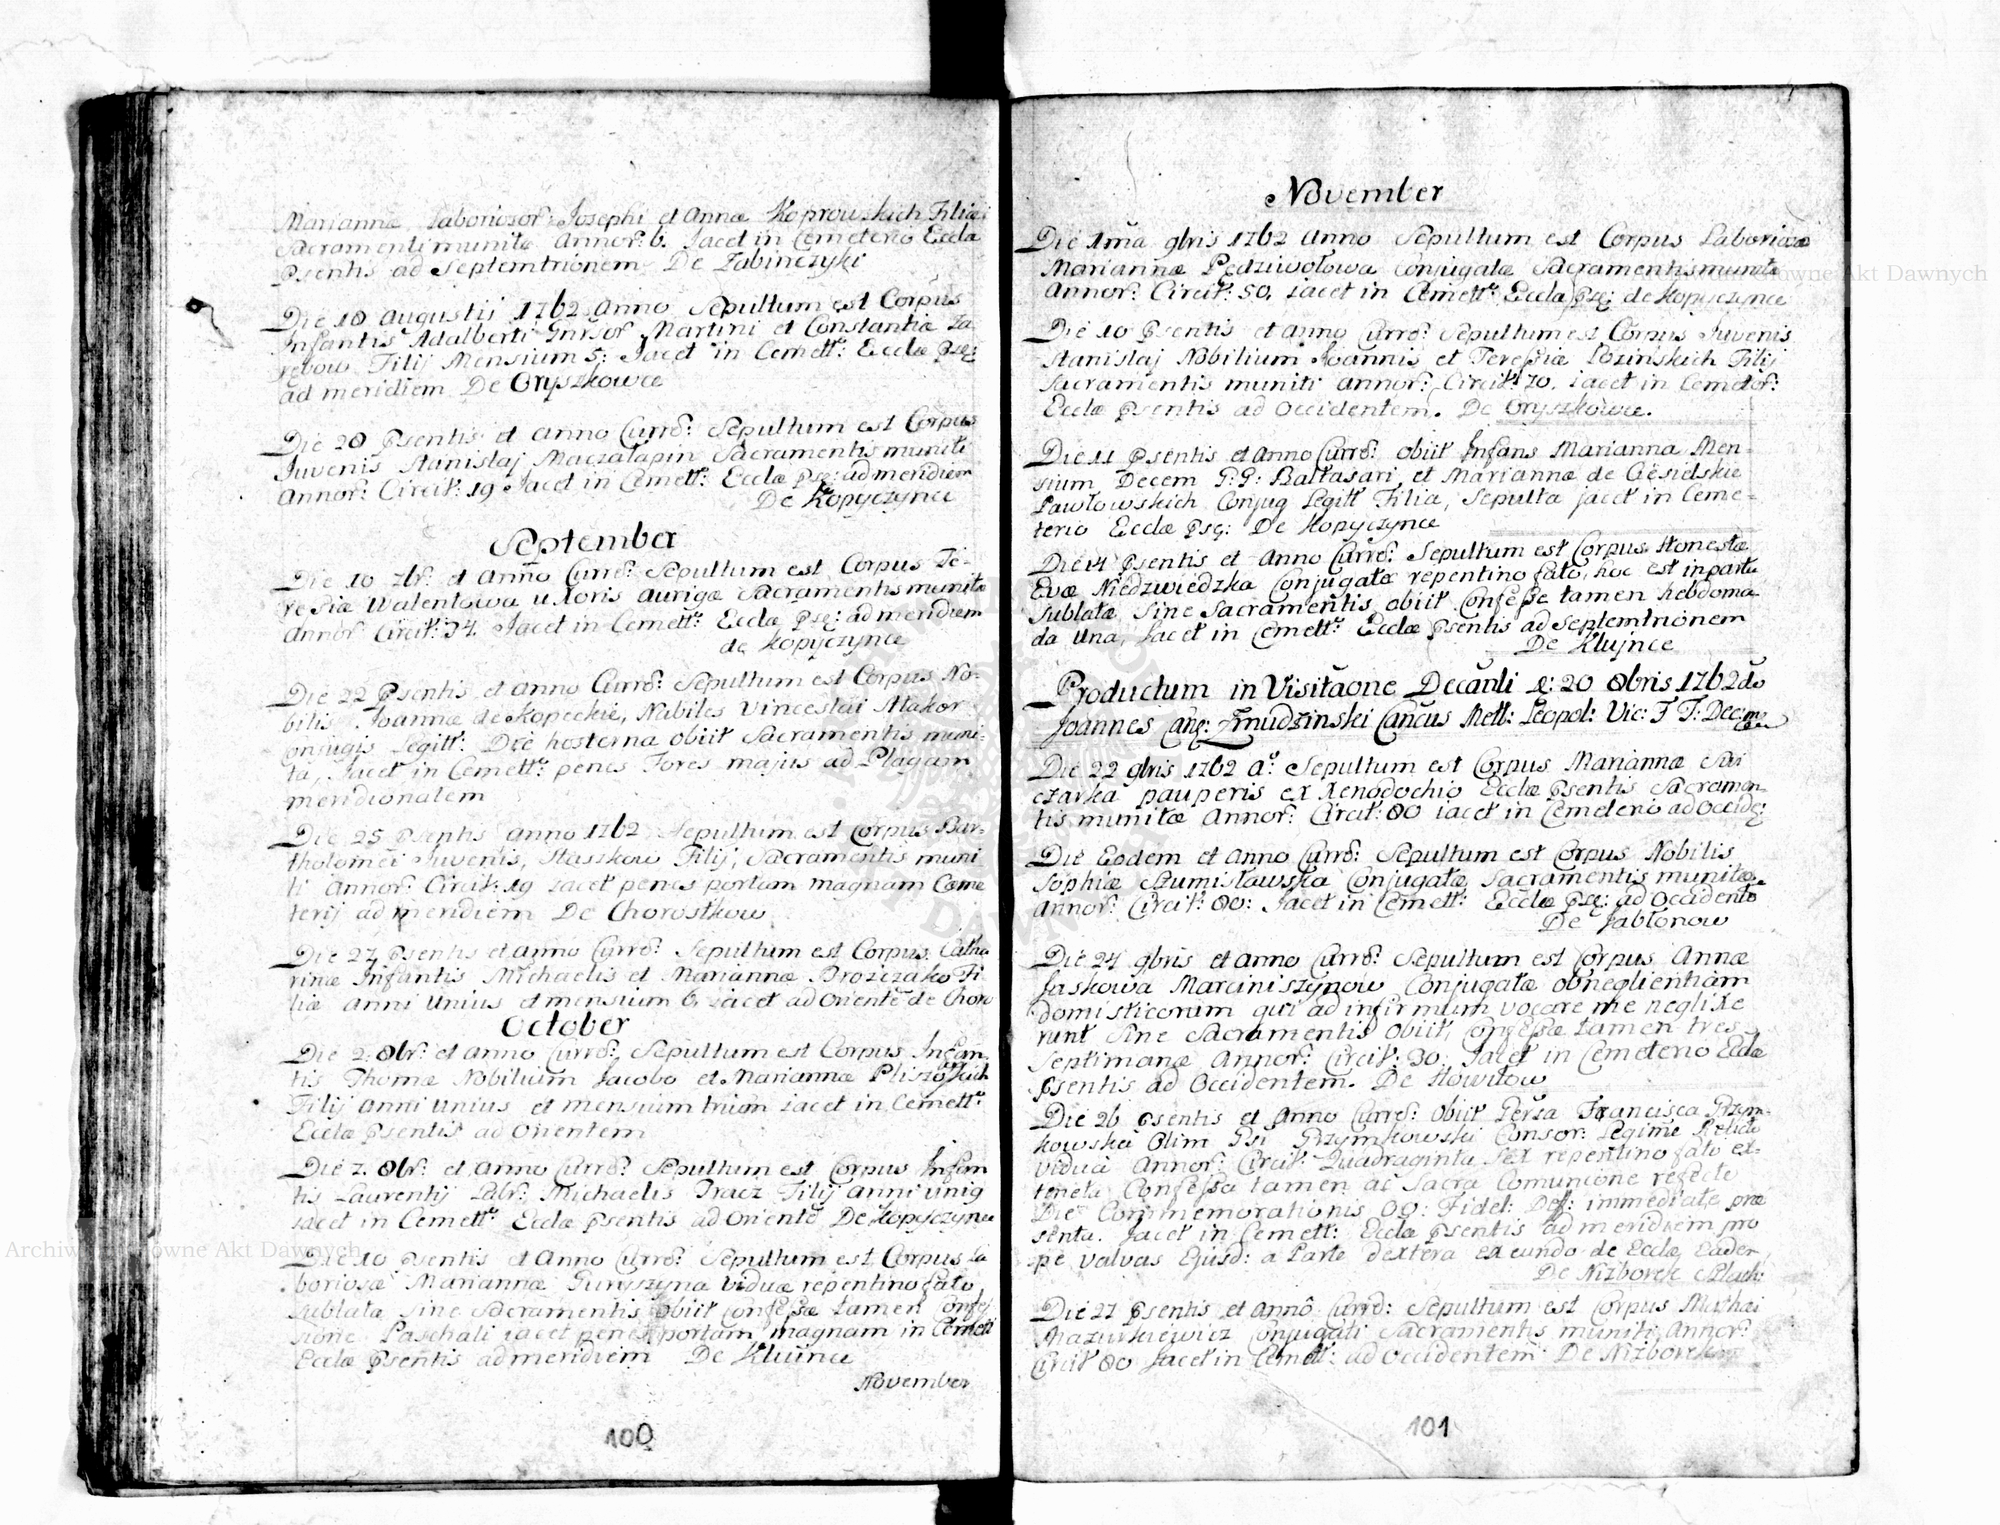 Mariannæ Laboriosor: Josephi et Annæ Koprowskich Filiæ
Sacramentimunitæ Annor: 6. Jacet in Cemeterio Eccla
Psentis ad Septemtrionem De Zabinczyki
Die 18 augustii 1762 Anno Sepultum est Corpus
Infantis Adalberti Gnrsof Martini et Constantiæ Za
rębow Filij Mensium 5: Jacet in Cemett: Ecclæ Pse:
ad meridiem De Oryszkowce
Die 28 Psentis et anno Curro: Sepultum est Corpus
Juvenis Stanislaj Maczałapin Sacramentis muniti
Annor: Circit: 19 Jacet in Cemett: Ecclæ Pse: ad meridiem
De Kopyczynce
September
Die 10 7br: et Anno Curro: Sepultum est Corpus Te-
resiæ Walentowa uxoris aurigæ Sacramentis munitæ
Annor: Circit: 34. Jacet in Cemett: Ecclæ Pse: ad meridiem
de Kopyczynce
Die 22 Psentis et anno Curro: Sepultum est Corpus No-
bilis Joannæ de Kopeckie, Nobiles Vinceslai Makor
onjugis Legitt: Die hesterna obiit Sacramentis muni-
ta, Jacet in Cemett: penes Fores majus ad Plagam
meridionalem
Die 25 Psentis anno 1762 Sepultum est Corpus Bar-
tholomei Juvenis, Stasskow Filij, Sacramentis muni
ti Annor: Circit: 19 iacet penes portam magnam Cæme
terij ad meridiem De Chorostkow
Die 27 Psentis et anno Curro: Sepultum est Corpus Catha
rinæ Infantis Michaelis et Mariannæ Drozczako Fi
liæ anni unius et mensium 6 iacet ad Oriente de Choro
October
Die 2. 8br: et anno Curro: Sepultum est Corpus Infan-
tis Thomæ Nobilium Jacobo et Mariannæ Pliszowskich
Filij anni unius et mensium trium iacet in Cemett:
Ecclæ Psentis ad Orientem
Die 7. 8br: et anno Curro: Sepultum est Corpus Infan
tis Laurentij Labr: Michaelis Tracz Filij anni unig
iacet in Cemett: Ecclæ Psentis ad Oriente De Kopyczynce
Die 10 Psentis et Anno Curro: Sepultum est Corpus La
boriosæ Mariannæ Guryszyna Viduæ repentino fato
sublata sine Sacramentis obiit confessa tamen confes
sione Paschali iacet penes portam magnam in Cemett
Ecclæ Psentis ad meridiem De Kluince
November
100
November
Die 1ma 9bris 1762 Anno Sepultum est Corpus Laboriosæ
Mariannæ Pędziwołowa Conjugatæ Sacramentis munitæ
Annor: Circit: 50. iacet in Cemett: Eccla Pse: de Kopyczynce
Die 10 Psentis et anno Curro: Sepultum est Corpus Juvenis
Stanislaj Nobilium Joannis et Teressiæ Łozinskich Filij
Sacramentis muniti annor: Circit: 70. iacet in Cemeter:
Ecclæ Psentis ad Occidentem. De Oryszkowce.
Die 11 Psentis et Anno Curro: obiit Infans Marianna Men-
sium Decem G: G: Baltasari et Mariannæ de Ciesielskie
Pawłowskich Conjug Legitt Filia, Sepulta jacet in Ceme-
terio Ecclæ Pse: De Kopyczynce
Die 14 Psentis et Anno Curro: Sepultum est Corpus Honestæ
Evæ Niedzwiedzka Conjugatæ repentino fato, hoc est in partu
sublatæ sine Sacramentis obiit Confesse tamen hebdoma-
da una, Jacet in Cemett: Ecclæ Psentis ad Septemtrionem
De Klujnce
Productum in Visitaone Decanli d: 20 9bris 1762do
Joannes Zmudzinski Cancus Mett: Leopol: Vic: F F: Decan
Die 22 9bris 1762 Ao Sepultum est Corpus Mariannæ
czarka pauperis ex Xenodochio Ecclæ Psentis Sacramen-
tis munitæ Annor: Circit: 80 iacet in Cemeterio ad Occide:
Die Eodem et Anno Curro: Sepultum est Corpus Nobilis
Sophiæ Szumisławska Conjugatæ Sacramentis munitæ
Annor: Circit: 80: Jacet in Cemett: Ecclæ Pse: ad Occidente
De Jabłonow
Die 24 9bris et Anno Curro: Sepultum est Corpus Annæ
Jaskowa Marciniszynow Conjugatæ ob neglientiam
domisticorum qui ad infirmum vocare me neglixe
runt sine Sacramentis obiit, Confesse tamen tres
Septimanæ Annor: Circit: 30: Jacet in Cemeterio Ecclæ
Psentis ad Occidentem. De Howiłow
Die 26 Psentis et Anno Curro: obiit Gersa Francisca Przym-
kowska Olim Gsi Przymkowski Consor: Legime Relicta
vidua Annor: Circit: Quadraginta Sex repentino fato ex-
teneta Confessa tamen ac Sacra Comuncone refecte
Die Commemorationis OO: Fidel: Def: immediate præ
senta. Jacet in Cemett: Ecclæ Psentis ad meridiem pro
pe valvas Ejusd: a Parte dextera exeundo de Eccla, Eader
De Nizborek Szlach:
Die 27 Psentis et Anno Curro: Sepultum est Corpus Michai
Mazurkiewicz Conjugati Sacramentis muniti Annor:
Circit 80 Jacet in Cemett: ad Occidentem De Nizborek
101